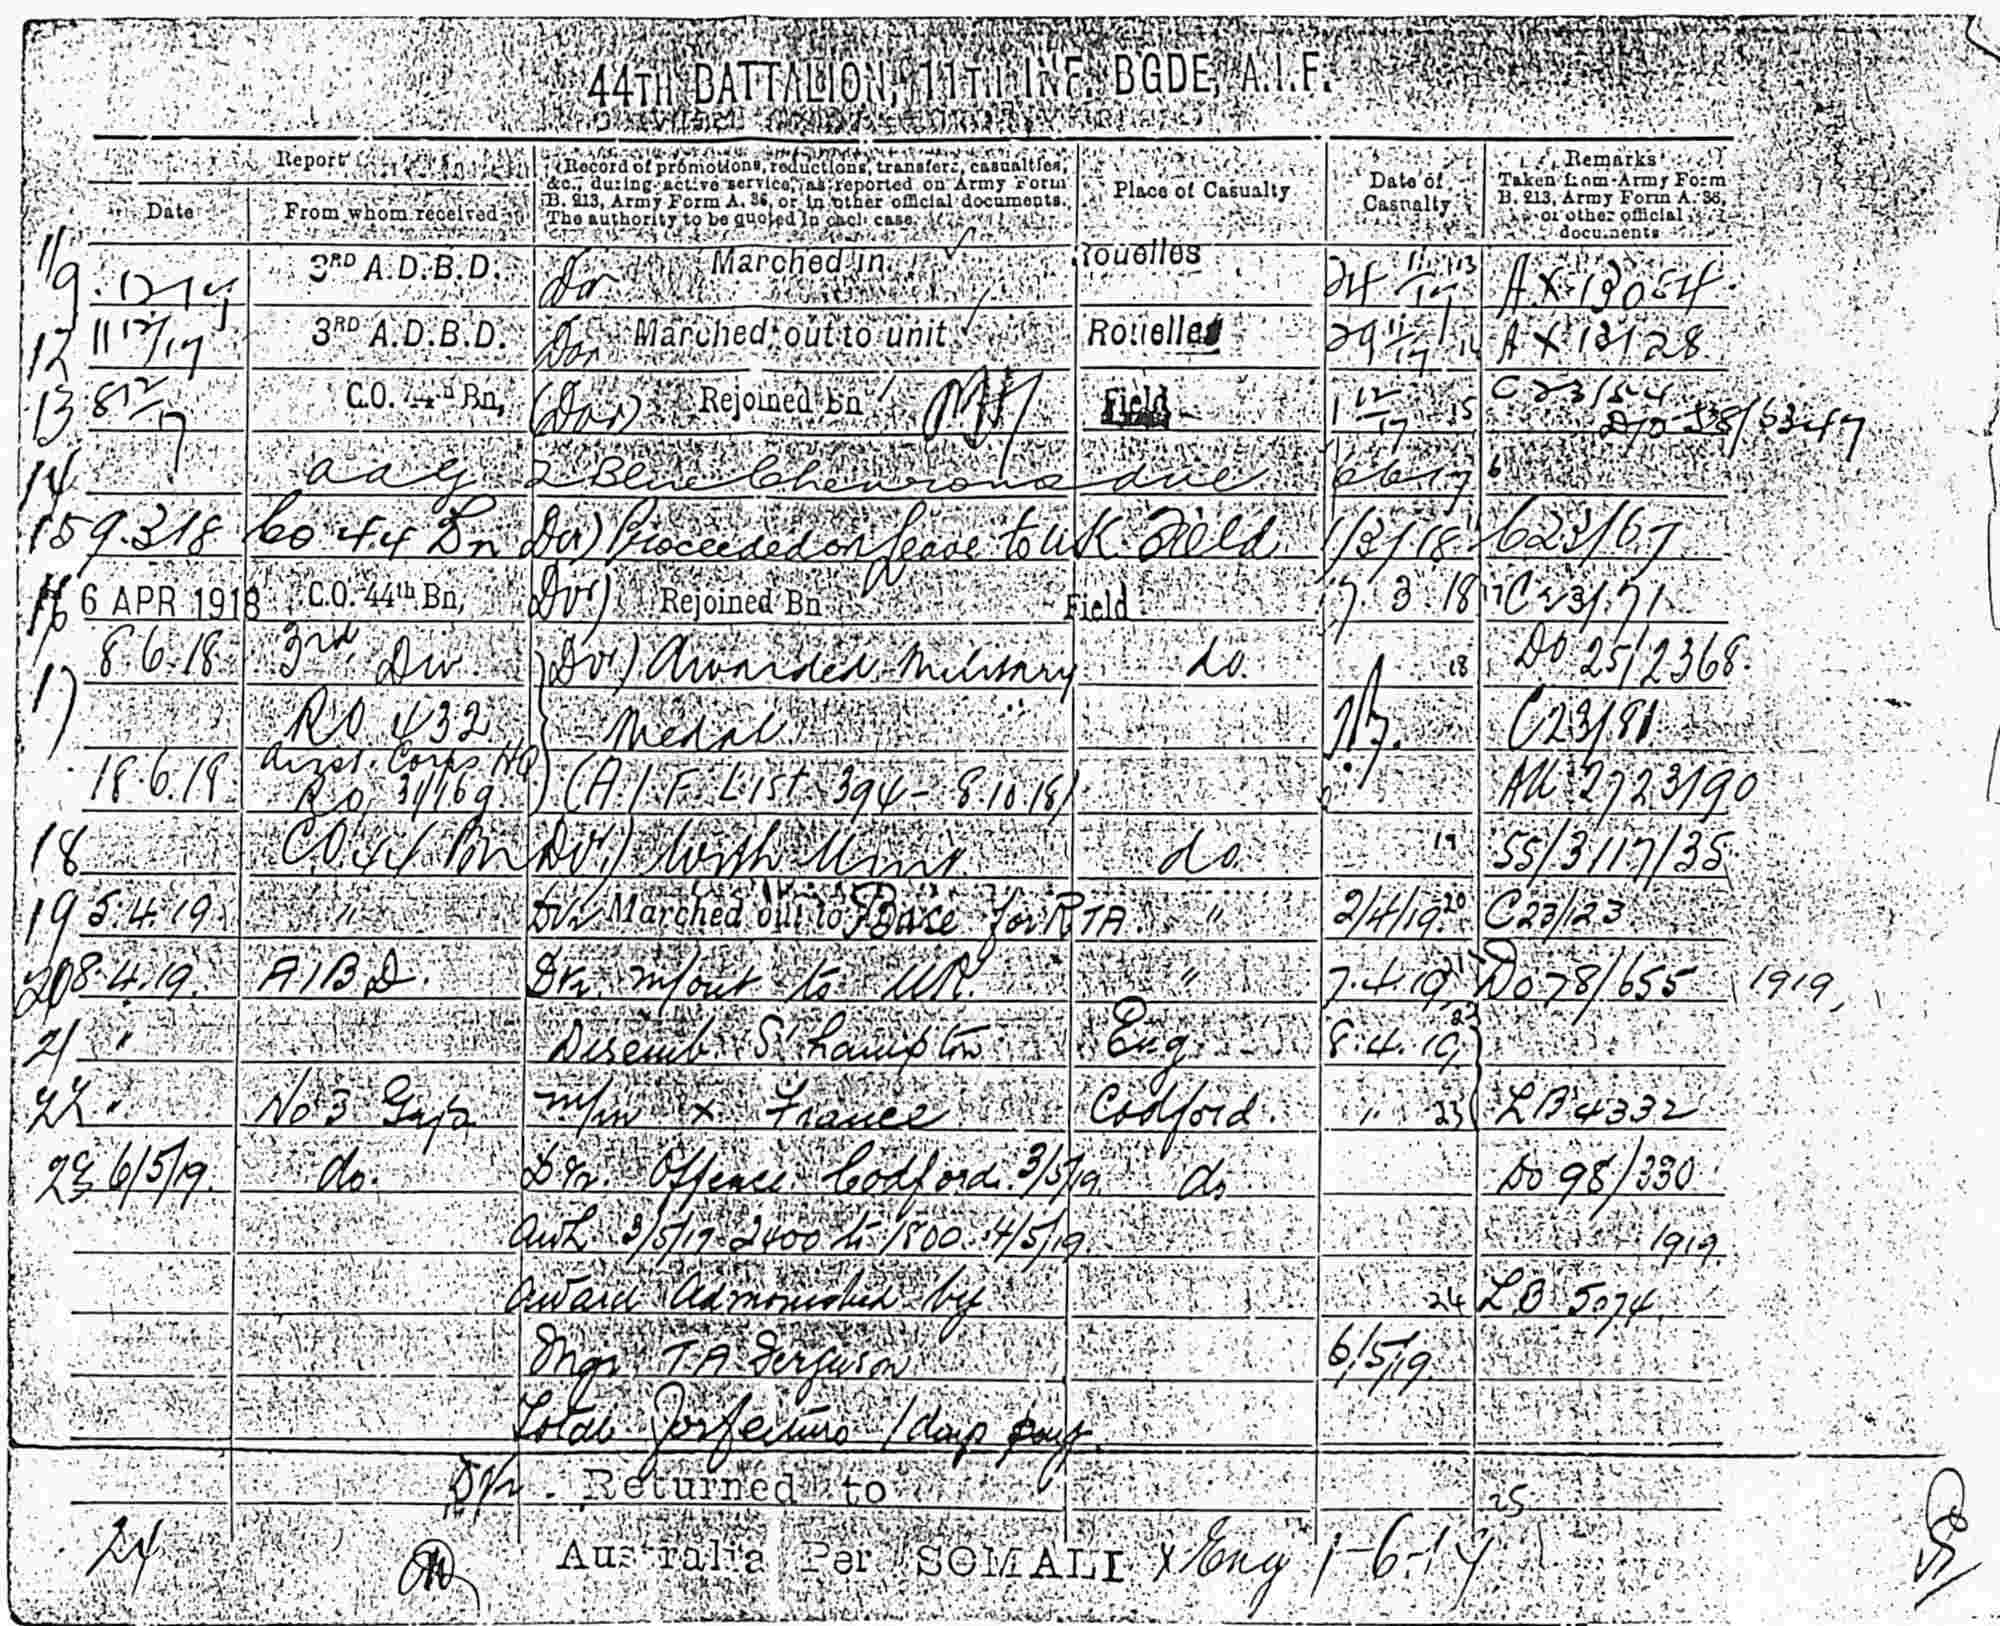 44TH BATTALION, 11TH INF. BGDE, A.I.F.
Report
(Record of promotions, reductions, transfers, casualties,
&c., during active service, as reported on Army Form
B. 213, Army Form A. 36, or in other official documents.
The authority to be quoted in each case.
Place of Casualty
Date of
Casualty
Remarks
Taken from Army Form
B. 213, Army Form A. 36,
or other official
documents
Date
From whom received
11/9 3RD A.D.B.D. Dvr Marched in Rouelles 24 11/17 13 AX 13054
12 11 12/17 3RD A.D.B.D. Dvr Marched out to unit Rouelles 29 11/17 14 AX 13128
13 8 12/17 C.O. 44th Bn, (Dvr) Rejoined Bn Field 1 12/17 15 C23/54
14 a a g 2 Blue Chevrons due 6 6 17
15 9.3.18 Co 44 Bn Dvr) Proceeded on Leave to UK. Field 1/3/18 C23/67
16 6 APR 1918 C.O. 44th Bn, Dvr) Rejoined Bn Field 17.3.18 17 C23/71
17 8.6.18 3rd Div. Dvr) Awarded Military do. 18 DO 25/2368.
RO 432 Medal C23/81
18.6.18 Aust. Corps HQ
RO 31/169. (A.I.F. List 394 - 8.10.18) AU 2723/90
18 C.O 44 Bn Dvr) With Unit. do. 19 55/3117/35
19 5.4.19. " Dvr Marched out to Base for RTA. " 2/4/19 20 C23/123
20 8.4.19. A I B D. Dvr. m/out to UK. " 7.4.19 21 Do 78/655 1919,
21 " Disemb. S'hampton Eng 8.4.19 22
22 " No 3 Grp m/in x France Codford. " 23 LB 4332
23 6/5/19. do. Dvr. Offence. Codford. 3/5/19. do Do 98/330
awl 3/5/19 2400 to 1800 4/5/19. 1919.
Award Admonished by 24 LB 5074
T A Ferguson 6/5/19.
Total Forfeiture 1 days pay.
Dvr. Returned to 25
24 Australia Per SOMALI x Eng 1-6-19